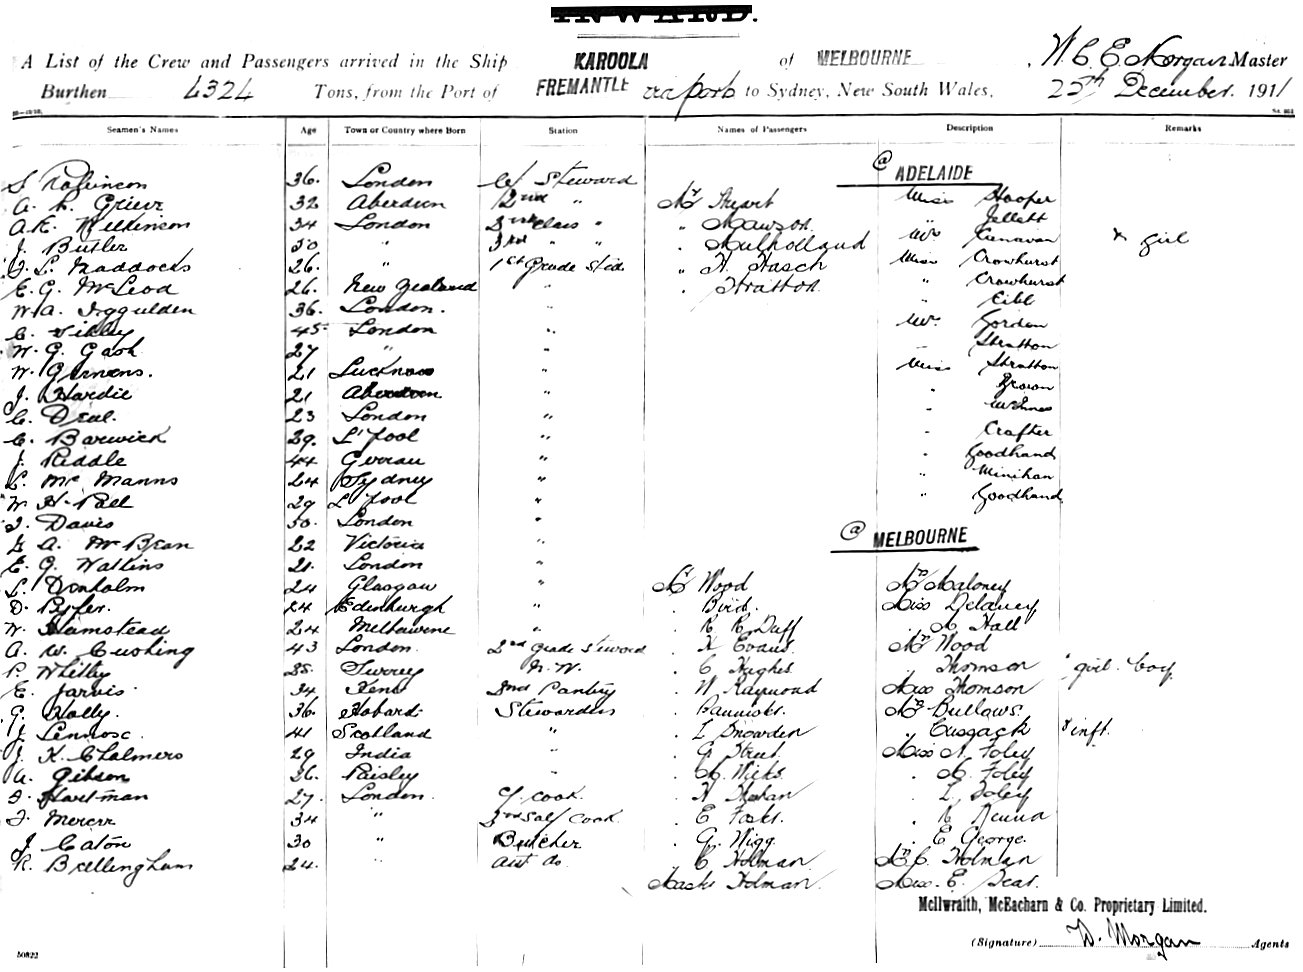 INWARD.
A List of the Crew and Passengers arrived in the Ship KAROOLA of MELBOURNE, W. C. E. Morgan Master
Burthen 4324 Tons, from the Port of FREMANTLE via ports to Sydney, New South Wales, 25th December 1911
Seamen's Names Age Town or Country where Born Station Names of Passengers Description Remarks
@ ADELAIDE
S. Robinson 36. London C/ Steward
Miss Hooper
A. R. Grieve 32 Aberdeen 2nd " Mr Stuart
" Jellett
A. E. Wilkinson 34 London 2nd Class " " Mawson
Mrs Cunavan x girl
J. Butler 30 " 3rd " " " Mulholland
Miss Crowhurst
J. L. Maddocks 26. " 1st Grade Std. " H. Hasch
" Crowhurst
E. G. McLeod 26. New Zealand " " Stratton
" Eibl
W. A. Iggulden 36. London. "
Mr. Gordon
C. Tilley 45 London "
Stratton
W. G. Gash 27 " "
Miss Stratton
W. 21 Lucknow "
" Brown
J. Hardie 21 Aberdeen "
" McInnes
C. Deal. 23 London "
" Crafter
C. Barwick 29. L'pool "
" Goodhand
J. Riddle 44 "
" Minihan
L. McManns 24 Sydney "
" Goodhand
W. H. Pall 29 L'pool "
J. Davis 30. London "
@ MELBOURNE
G. A. McBean 22 Victoria "
E. G. Watkins 21. London "
L. Denholm 24 Glasgow " Mr Wood Mrs Maloney
D. 24 Edinburgh " " Bird. Miss Delaney
W. Hamstead 24 Melbourne " " R. R. Duff " M Hall
A. W. Cushing 43 London. 2nd Grade Steward " H. Evans Mrs Wood
P. Whitby 35. Surrey N. W. " C Hughes " Thomson " girl. boy
E. Jarvis 34 Kent 2nd Pantry " W Raymond Miss Thomson
G. Holly. 36. Hobart Stewardess " Bannister. Mrs Bullows.
J. Lennox. 41 Scotland " " L Snowden " Cussack x inft.
J. K. Chalmers 29 India " " G. Street. Miss N. Foley
A. Gibson 26. Paisley " " M. Wicks " M. Foley
F. Hartman 27. London. C/ Cook. " H. " L Foley
F. Mercer 34 " 3rd Salf Cook " E
J. Eaton 30 " Butcher " G. Wigg. " E George.
R. Bullingham 24. " asst do " C Holman Mrs C. Holman
Master Holman Miss E. Dear.
McIlwraith, McEacharn & Co. Proprietary Limited.
(Signature) D. Morgan Agents
50822